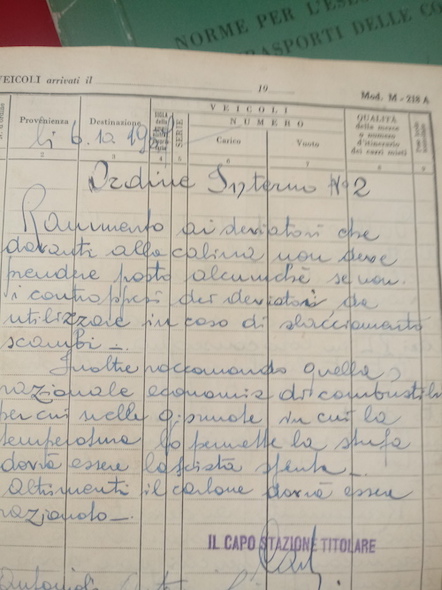 NORME PER L'ESE
TRASPORTI DELLE CO
VEICOLI arrivati il 19
Mod. M - 218 A
VEICOLI
Provenienza
Destinazione
SERIE
NUMERO
Carico
Vuoto
QUALITÀ
della merce
o numero
d'itinerario
dei carri misti
2 3 4 5 6 7 8 9
li 6.10.19
Ordine Interno N° 2
Rammento ai deviatori che
davanti alla cabina non deve
prendere posto alcunchè se non
i contrappesi dei deviatoi, da
utilizzare in caso di slacciamento
scambi -.
Inoltre raccomando quella
razionale economia di combustibile
per cui nelle giornate in cui la
temperatura lo permette la stufa
dovrà essere lasciata spenta -.
altrimenti il carbone dovrà essere
razionato -.
IL CAPO STAZIONE TITOLARE